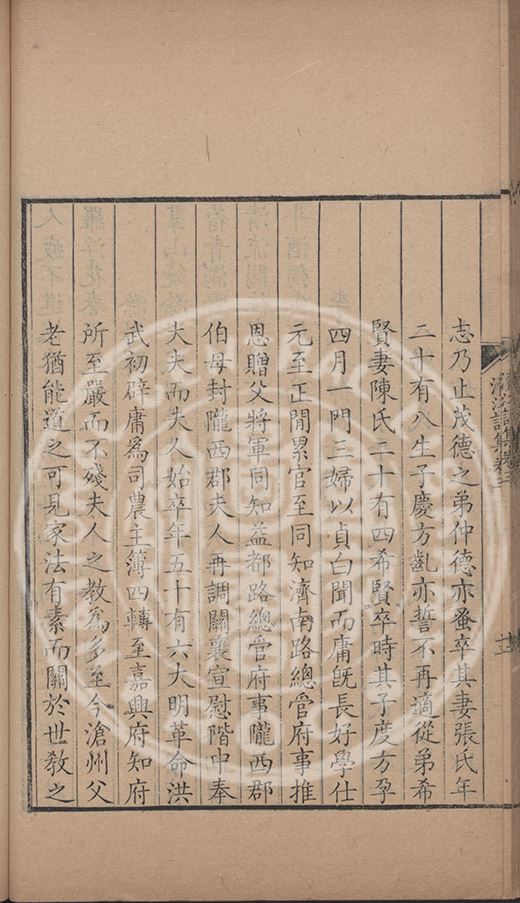 志乃止茂德之弟仲德亦蚤卒其妻張氏年
二十有八生子慶方齓亦誓不再適從弟希
賢妻陳氏二十有四希賢卒時其子度方孕
四月一門三婦以貞白聞而庸旣長好學仕
元至正閒累官至同知濟南路總管府事推
恩贈父將軍同知益都路總管府事隴西郡
伯母封隴西郡夫人再調關襄宣慰階中奉
大夫而夫人始卒年五十有六大明革命洪
武初辟庸爲司農主簿四轉至嘉興府知府
所至嚴而不殘夫人之教爲多至今滄州父
老猶能道之可見家法有素而關於世教之